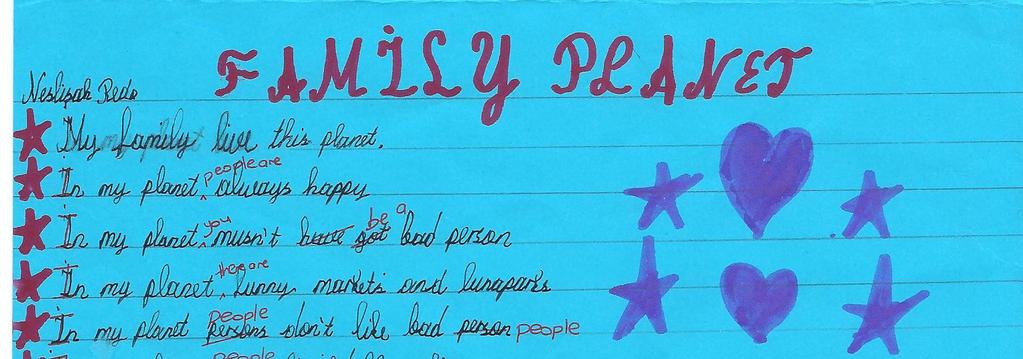 FAMİLY PLANET
Neslişah Redo
My family live this planet.
In my planet people are always happy
In my planet you musn't have got be a bad person
In my planet there are funny markets and lunaparks
In my planet persons people don't like bad person people
people